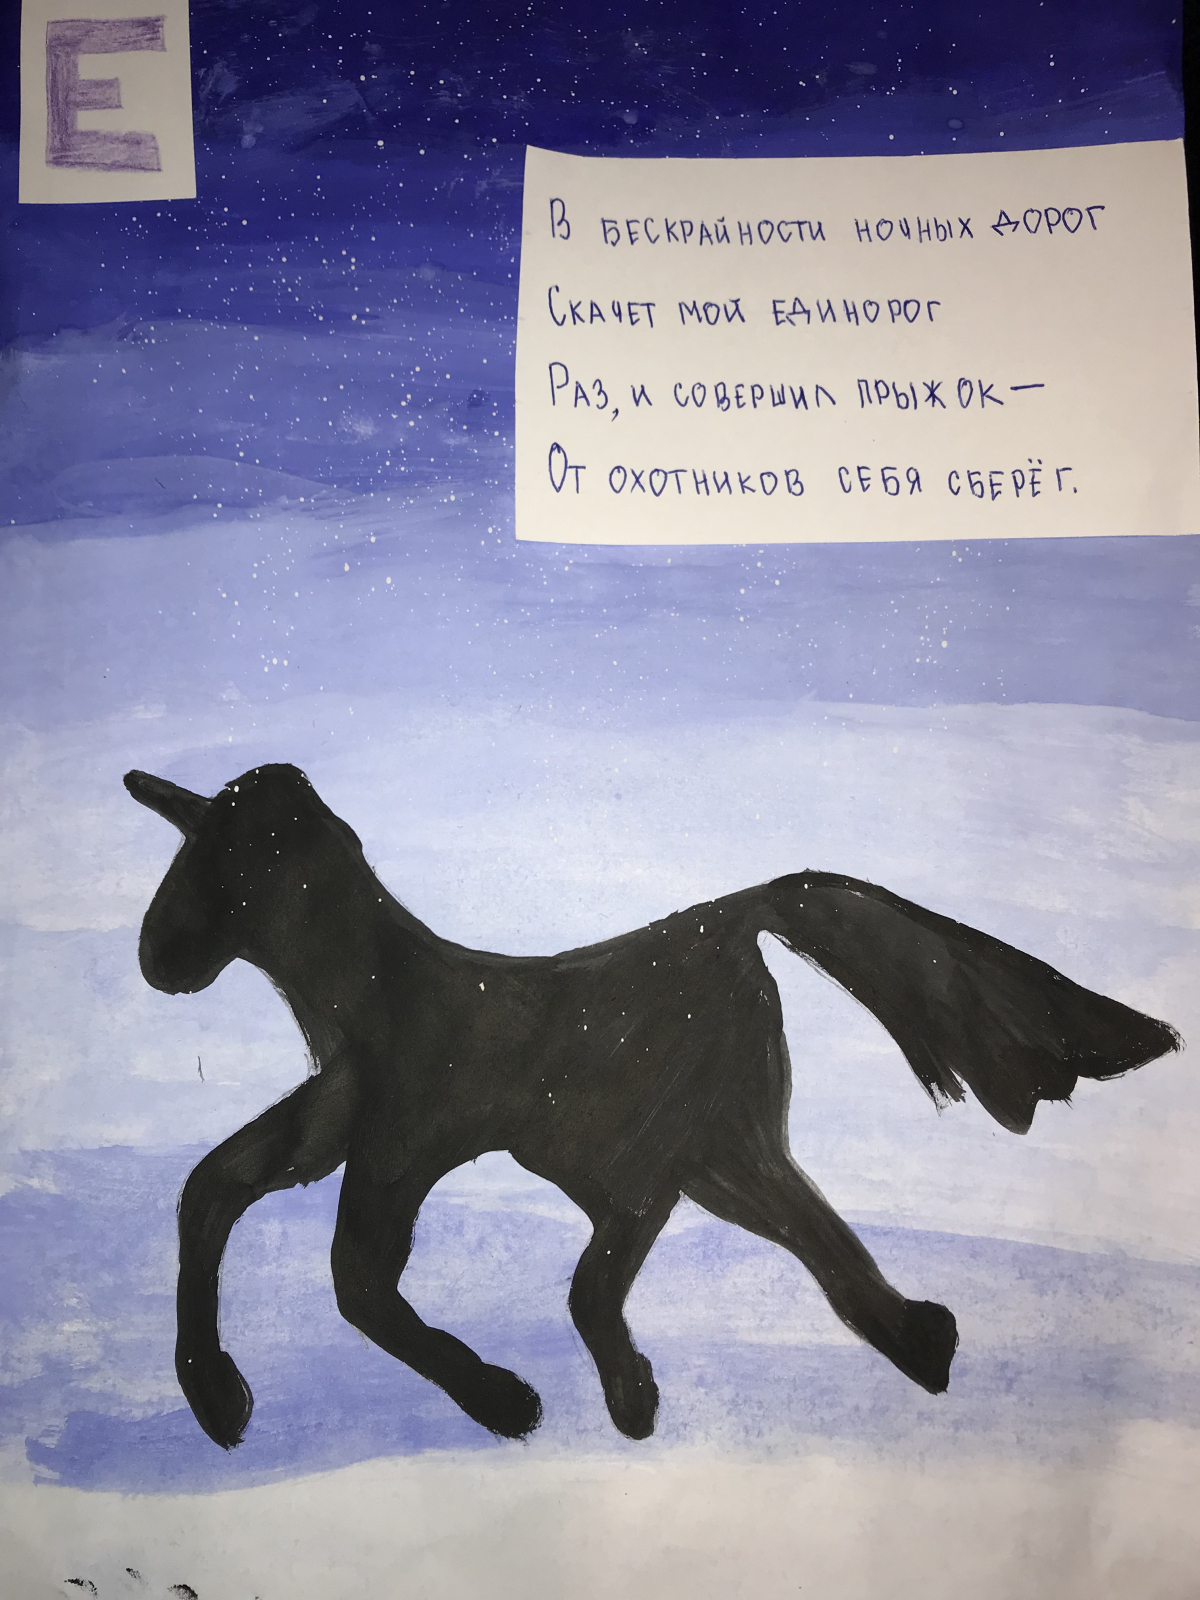 Е
В бескрайности ночных дорог
Скачет мой единорог
Раз, и совершил прыжок —
От охотников себя сберёг.